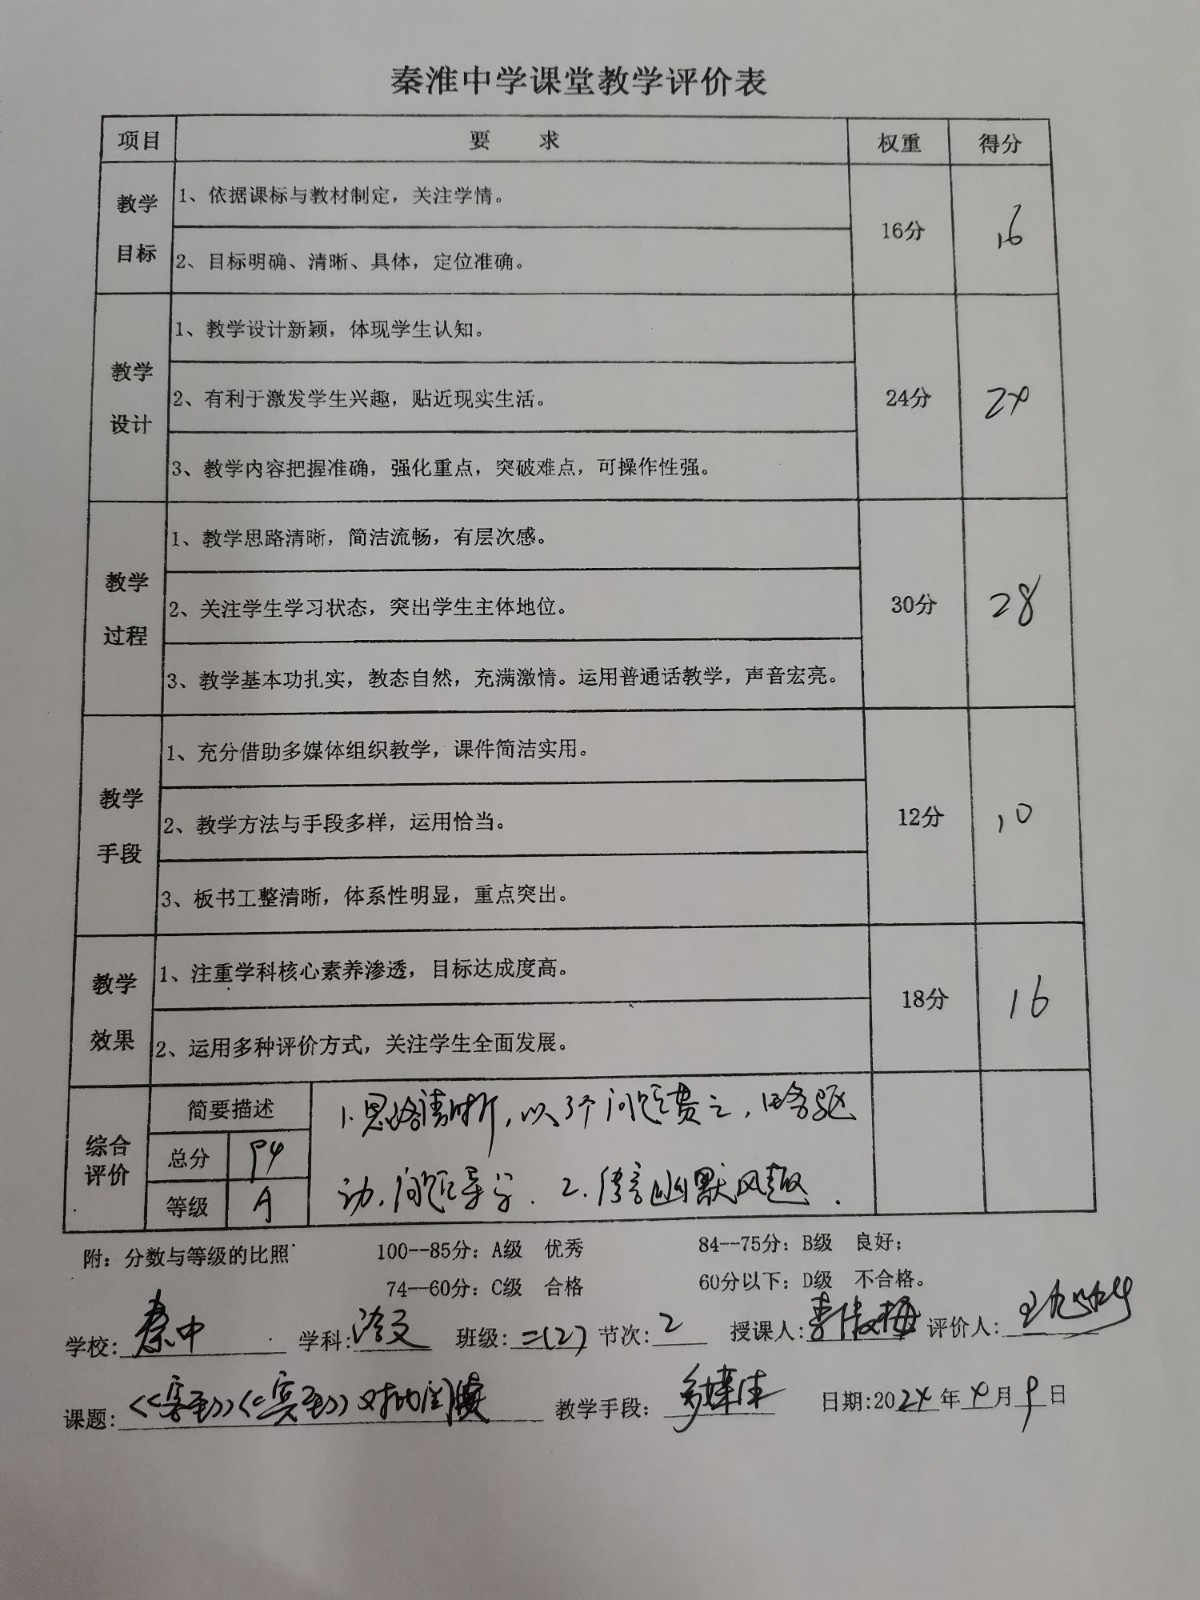 秦淮中学课堂教学评价表
项目 要 求 权重 得分
教学目标 1、依据课标与教材制定，关注学情。 16分 16
2、目标明确、清晰、具体，定位准确。
教学设计 1、教学设计新颖，体现学生认知。 24分 24
2、有利于激发学生兴趣，贴近现实生活。
3、教学内容把握准确，强化重点，突破难点，可操作性强。
教学过程 1、教学思路清晰，简洁流畅，有层次感。 30分 28
2、关注学生学习状态，突出学生主体地位。
3、教学基本功扎实，教态自然，充满激情。运用普通话教学，声音宏亮。
教学手段 1、充分借助多媒体组织教学，课件简洁实用。 12分 10
2、教学方法与手段多样，运用恰当。
3、板书工整清晰，体系性明显，重点突出。
教学效果 1、注重学科核心素养渗透，目标达成度高。 18分 16
2、运用多种评价方式，关注学生全面发展。
综合评价 简要描述 1.思路清晰，以3个问题贯之，任务驱
总分 94 动，问题导学．2.语言幽默风趣．
等级 A
附：分数与等级的比照 100--85分：A级 优秀 84--75分：B级 良好；
74--60分：C级 合格 60分以下：D级 不合格。
学校：秦中 学科：语文 班级：二(2) 节次：2 授课人：李 梅 评价人：
课题：《客至》《宾至》对比阅读 教学手段：多媒体 日期：2024年4月9日